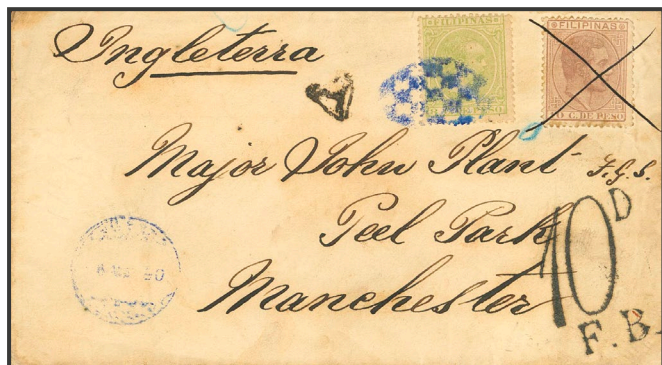 Ingleterra
FILIPINAS
FILIPINAS
DE PESO
C. DE PESO
Major John Plant F.G.S.
Peel Park
Manchester
10 D
F.B.